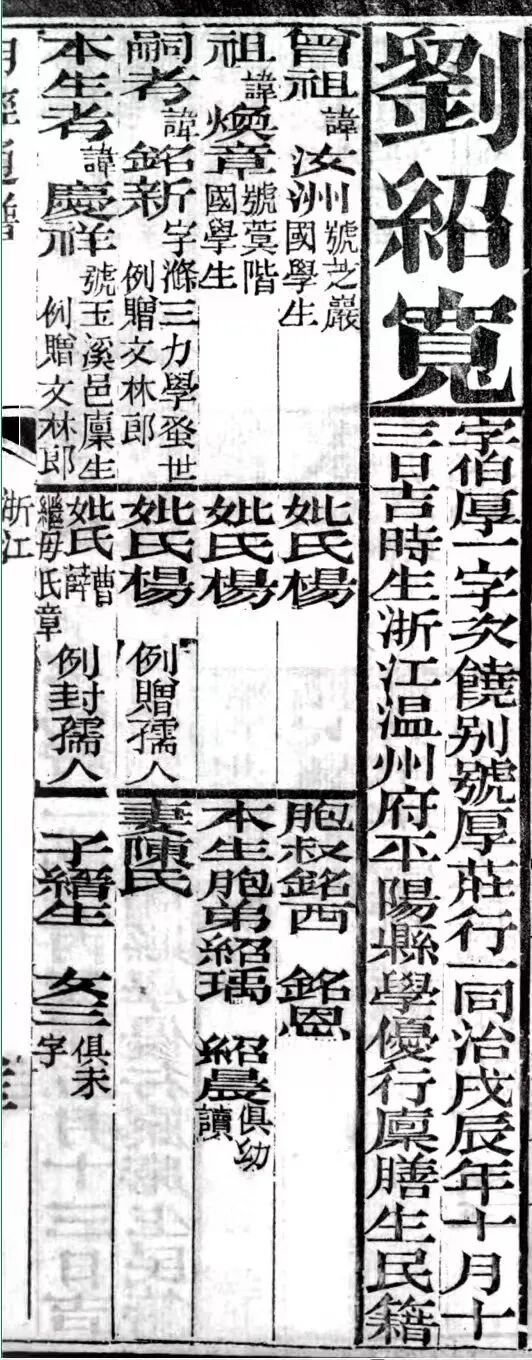 劉紹寬
字伯厚一字次饒别號厚莊行一同治戊辰年十月十
三日吉時生浙江温州府平陽縣學優行廩膳生民籍
曾祖諱汝洲號芝巖國學生
祖諱煥章號蓂階國學生
嗣考諱銘新字滌三力學蚤世例贈文林郎
本生考諱慶祥號玉溪邑廩生例贈文林郎
妣氏楊
妣氏楊
妣氏楊 例贈孺人
妣氏曹薛繼母氏章 例封孺人
胞叔銘西 銘恩
本生胞弟紹瑀 紹晨俱幼讀
妻陳氏
子縉生 女三俱未字
明經通譜
浙江